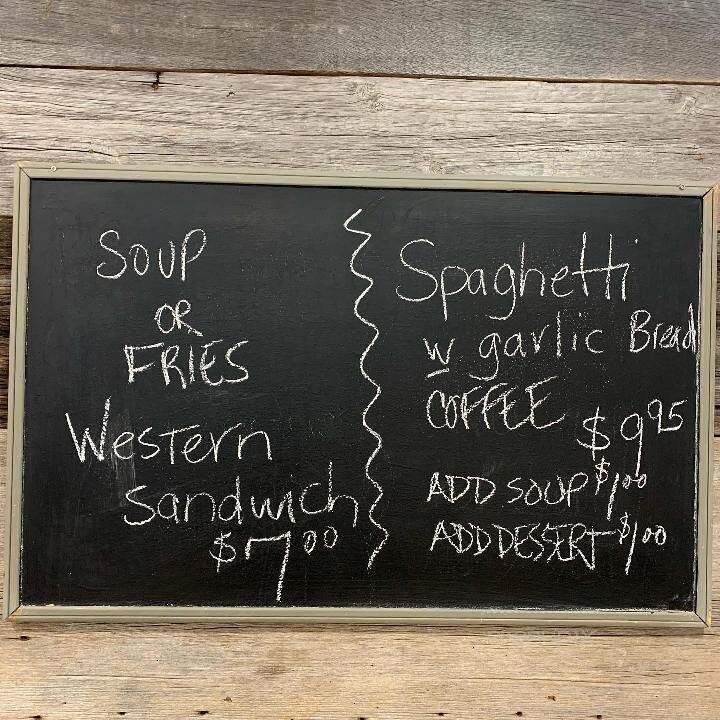 SOUP
OR
FRIES
Western
Sandwich
$7.00
Spaghetti
w garlic Bread
COFFEE
$9.95
ADD SOUP $1.00
ADD DESSERT $1.00